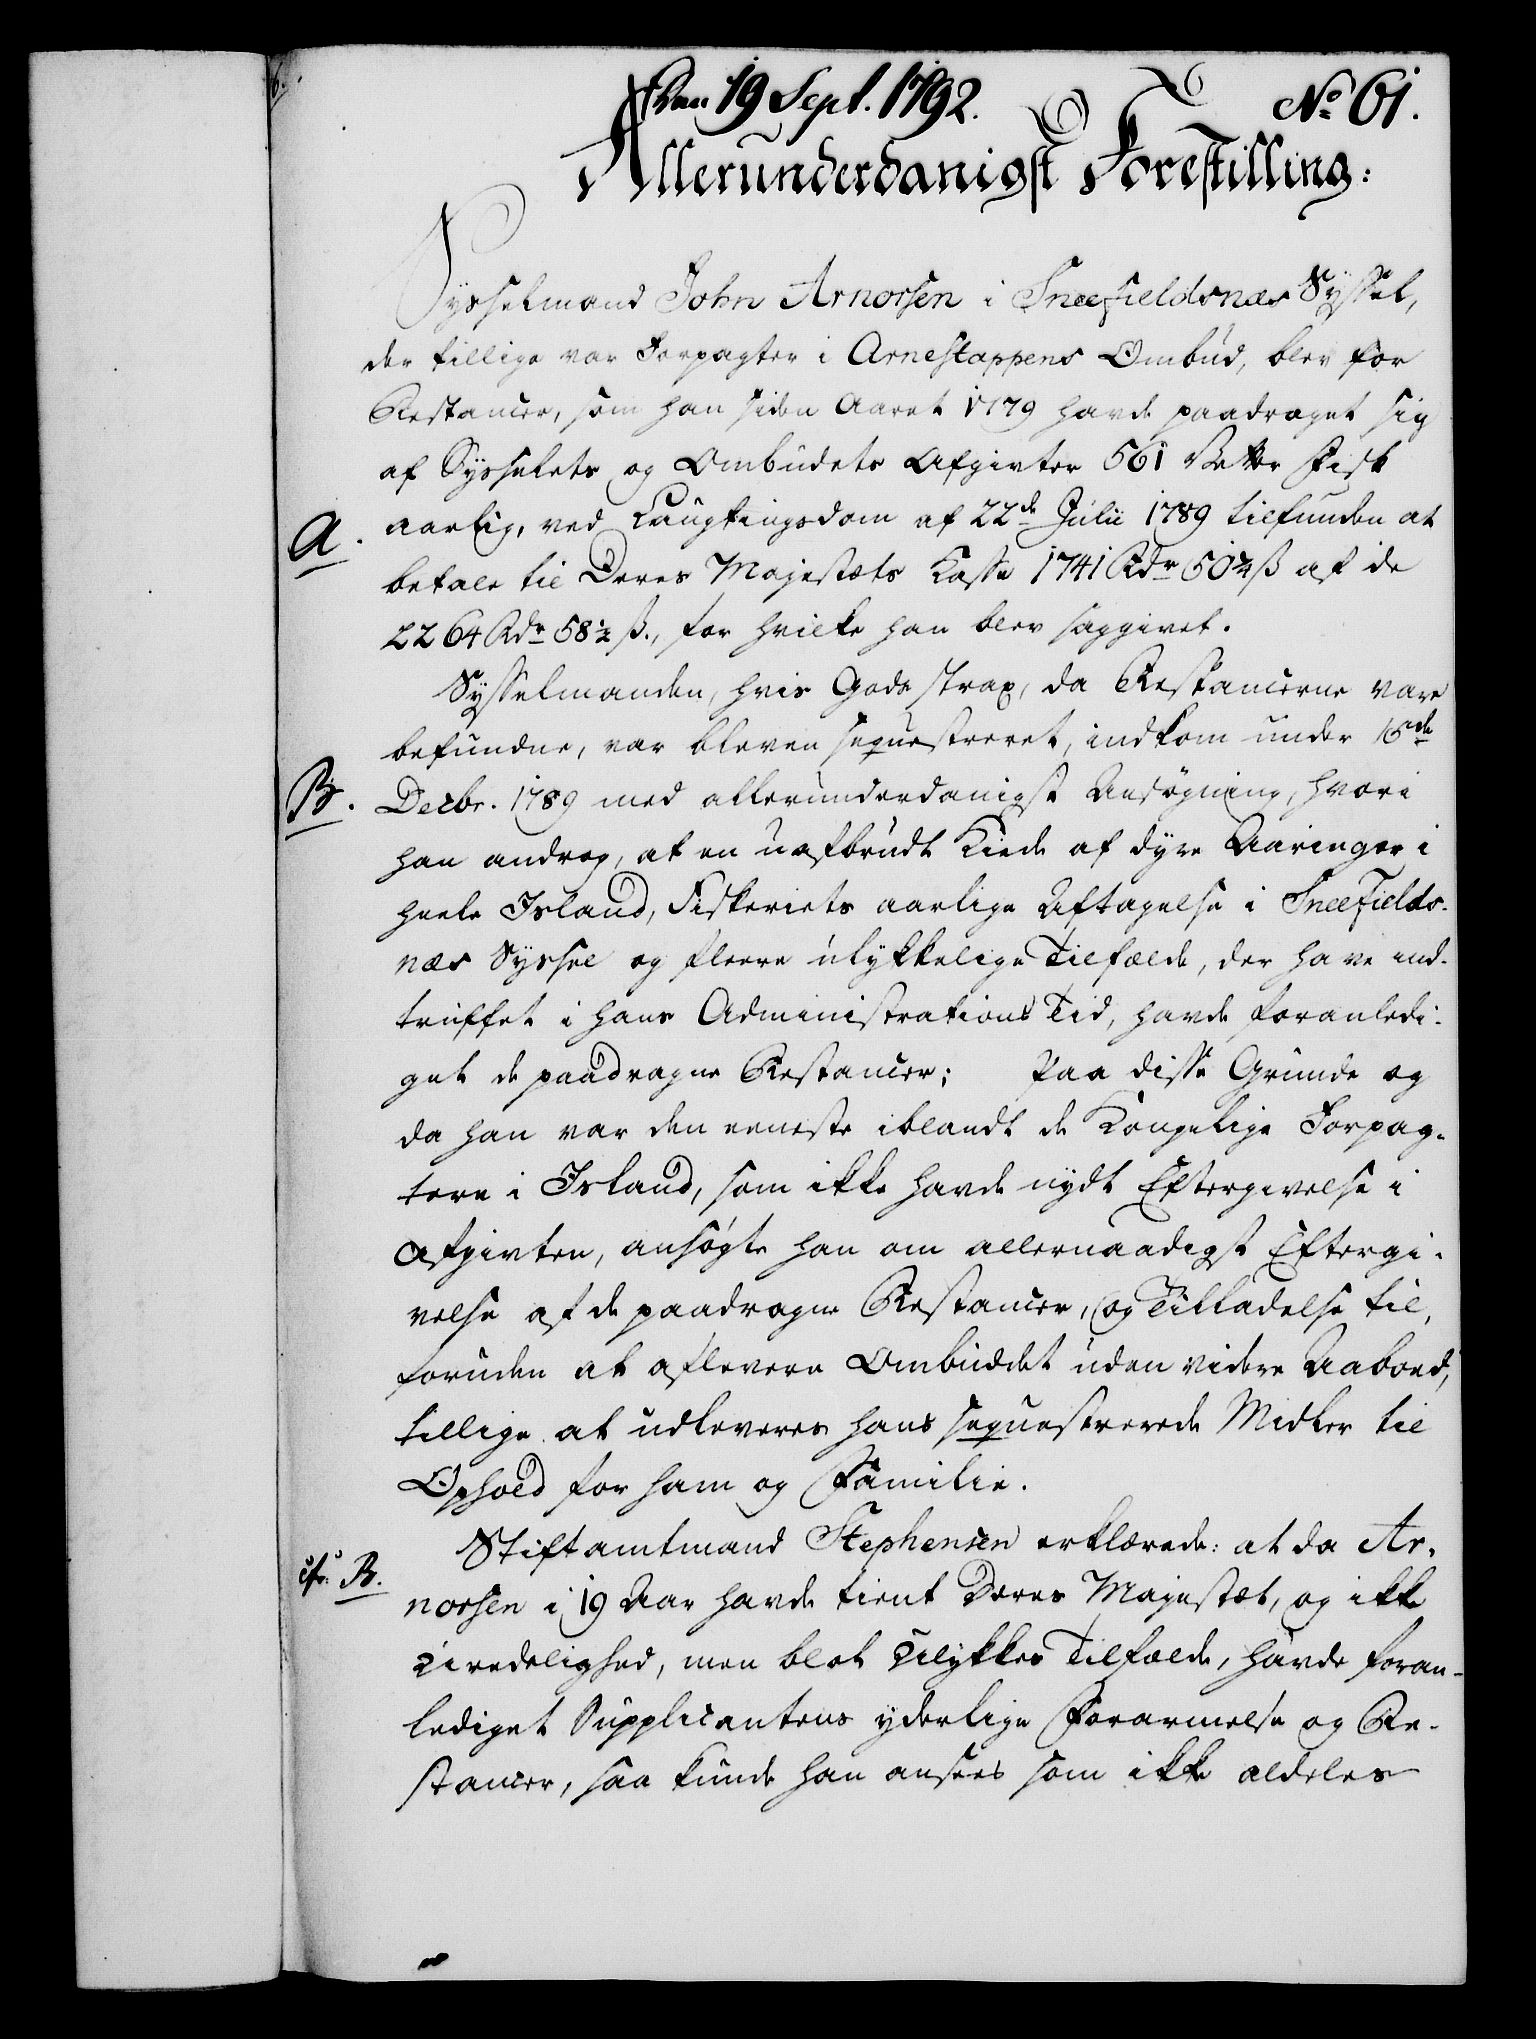 Den 19 Sept. 1792. No 61.
Allerunderdanigst Forestilling:
Sysselmand John Arnorsen i Sneefieldsnæs Syssel,
der tillige var Forpagter i Arnestappens Ombud, blev for
Restancer, som han siden Aaret 1779 havde paadraget sig
af Sysselets og Ombudets Afgivter 561 Vetter Fisk
A. aarlig, ved Laugtingsdom af 22de Julii 1789 tilfunden at
betale til Deres Majestæts Kasse 1741 Rdr 50¾ ß af de
2264 Rdr 58½ ß., for hvilke han blev saggivet.
Sysselmanden, hvis Gods strax, da Restancerne vare
befundne, var bleven sequestreret, indkom under 15de
B. Decbr. 1789 med allerunderdanigst Ansøgning, hvori
han androg, at en uafbrudt Kiede af dyre Aaringer i
heele Island, Fiskeriets aarlige Aftagelse i Sneefields-
næs Syssel og fleere ulykkelige Tilfælde, der have ind-
truffet i hans Administrations Tid, havde foranledi-
get de paadragne Restancer; Paa disse Grunde og
da han var den eeneste iblandt de Kongelige Forpag-
tere i Island, som ikke havde nydt Eftergivelse i
Afgivten, ansøgte han om allernaadigst Eftergi-
velse af de paadragne Restancer, og Tilladelse til,
foruden at aflevere Ombuddet uden videre Aaboed,
tillige at udleveres hans sequestrerede Midler til
Ophold for ham og Familie.
Stiftamtmand Stephensen erklærede: at da Ar-
cfr. B. norsen i 19 Aar havde tient Deres Majestæt, og ikke
Uredelighed, men blot Ulykkes Tilfælde, havde foran-
lediget Supplicantens yderlige Forarmelse og Re-
stancer, saa kunde han ansees som ikke aldeles